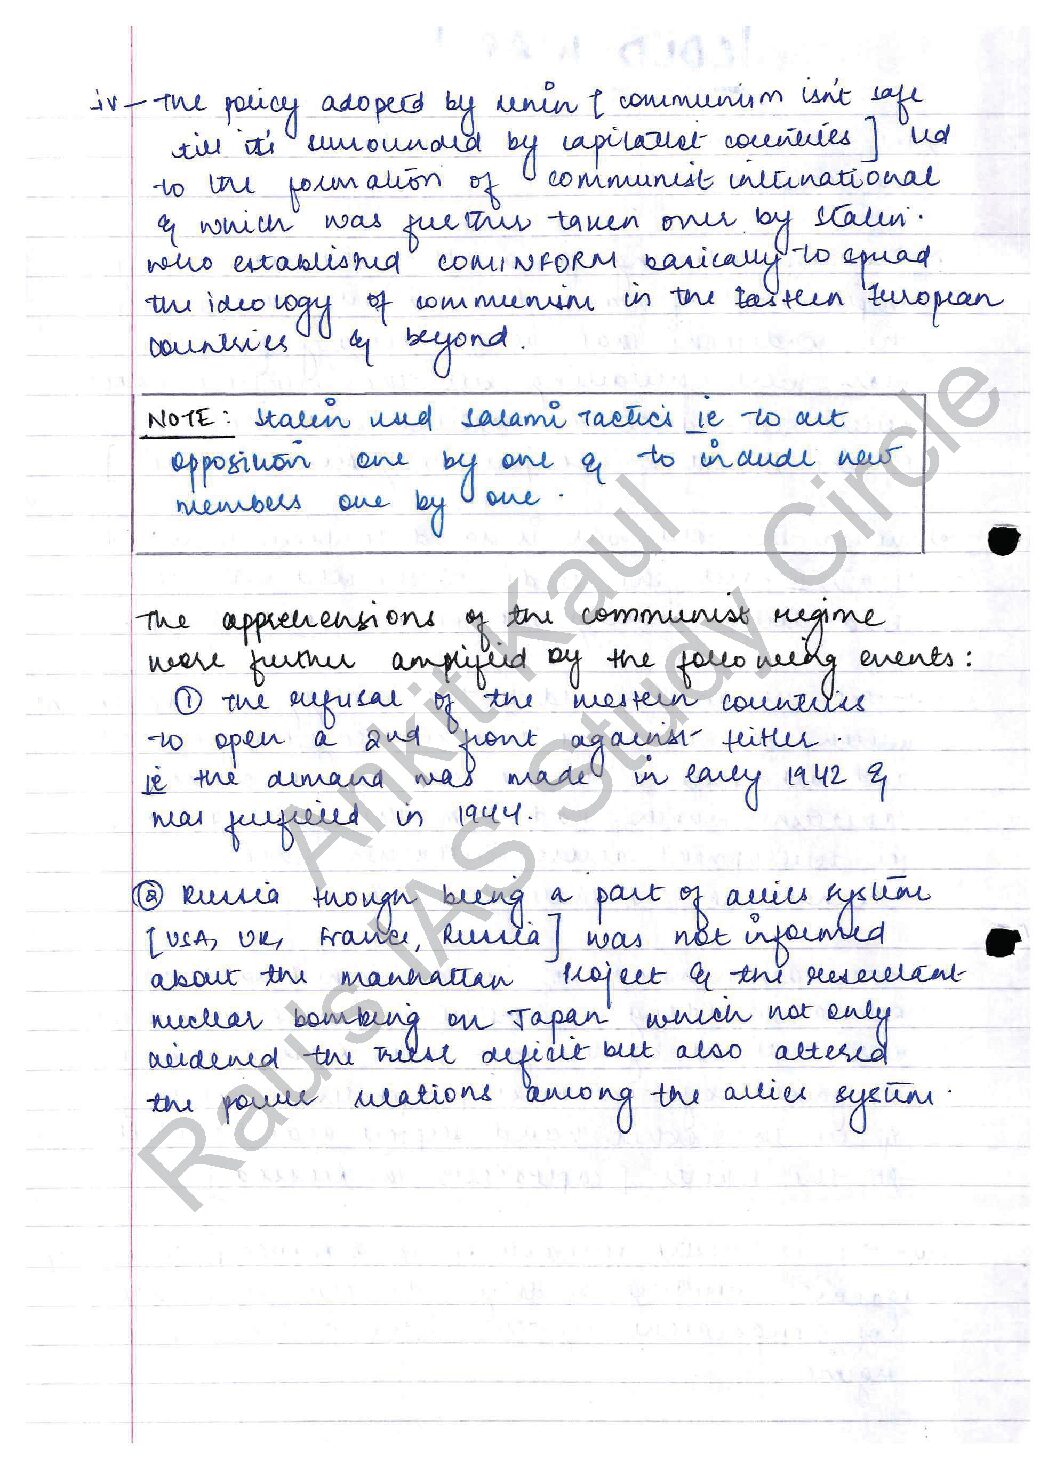 iv – The policy adopted by Lenin [ communism isn't safe
till it's surrounded by capitalist countries ] led
to the formation of communist international
& which was further taken over by Stalin.
who established COMINFORM basically to spread
the ideology of communism in the Eastern European
countries & beyond.
NOTE: Stalin used Salami Tactics ie to cut
opposition one by one & to include new
members one by one.
The apprehensions of the communist regime
were further amplified by the following events:
① The refusal of the western countries
to open a 2nd front against Hitler.
ie the demand was made in early 1942 &
was fulfilled in 1944.
② Russia though being a part of allies system
[USA, UK, France, Russia] was not informed
about the manhattan Project & the resultant
nuclear bombing on Japan which not only
widened the trust deficit but also altered
the power relations among the allies system.
Ankit Kaul
Rau's IAS Study Circle